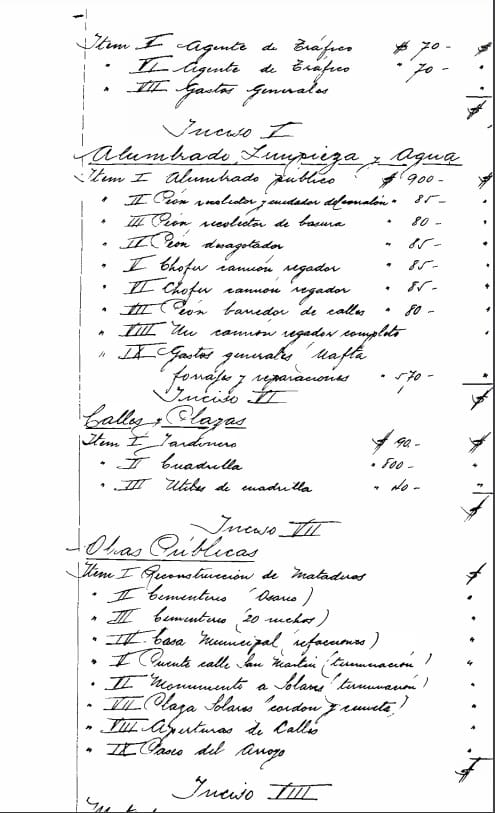 Item V Agente de Tráfico $ 70- $
" VI Agente de Tráfico " 70- "
" VII Gastos Generales "
$
Inciso V
Alumbrado, Limpieza y Agua
Item I Alumbrado público $ 900- $
" II Peón recolector y cuidador del corralón " 85- "
" III Peón recolector de basura " 80- "
" IV Peón desagotador " 85- "
" V Chofer camión regador " 85- "
" VI Chofer camión regador " 85- "
" VII Peón barredor de calles " 80- "
" VIII Un camión regador completo "
" IX Gastos generales Nafta
forrajes y reparaciones " 570- "
Inciso VI $
Calles y Plazas
Item I Jardinero $ 90- $
" II Cuadrilla " 800- "
" III Utiles de cuadrilla " 40- "
$
Inciso VII
Obas Públicas
Item I Reconstrucción de Mataderos $
" II Cementerio (Osario) "
" III Cementerio (20 nichos) "
" IV Casa Municipal (refacciones) "
" V Puente calle San Martín (terminación) "
" VI Monumento a Solares (terminación) "
" VII Plaza Solares (cordon y cuneta) "
" VIII Aperturas de Calles "
" IX Paseo del Arroyo "
$
Inciso VIII